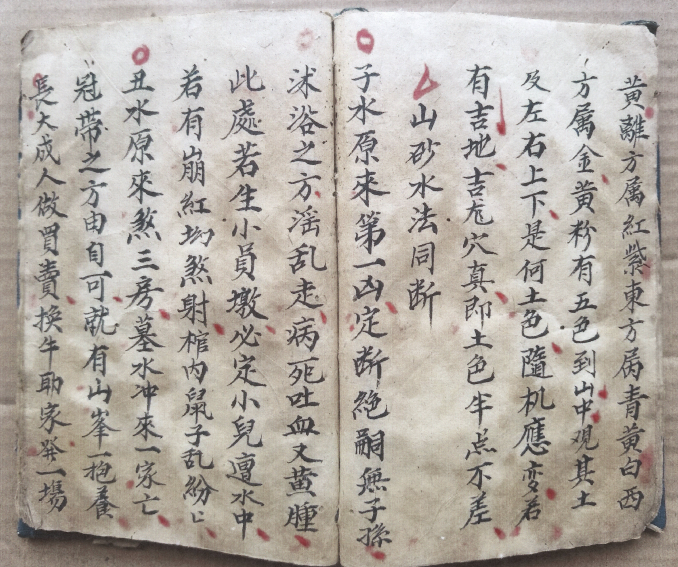 黄離方属紅紫東方属青黄白西
方属金黄粉有五色到山中观其土
及左右上下是何土色隨机應变若
有吉地吉龙穴真即土色半点不差
山砂水法同断
子水原來第一凶定断絶嗣無子孫
沐浴之方滛乱走病死吐血又黄腫
此處若生小員墩必定小兒遭水中
若有崩紅坳煞射棺内鼠子乱紛匕
丑水原來煞三房墓水冲來一家亡
冠帶之方由自可就有山峯一抱養
長大成人做買賣換牛助家發一場